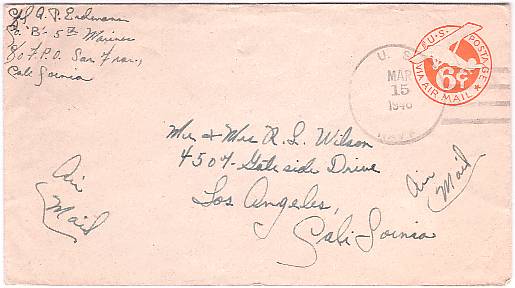 Cpl A. P. Erdmann
Co. "B" - 5th Marines
c/o F.P.O. San Fran.,
California
U.S. POSTAGE
6¢
VIA AIR MAIL
U. S.
MAR
15
1946
NAVY
Mr. & Mrs R. L. Wilson
4507 - Gateside Drive
Los Angeles,
California
Air
Mail
Air
Mail